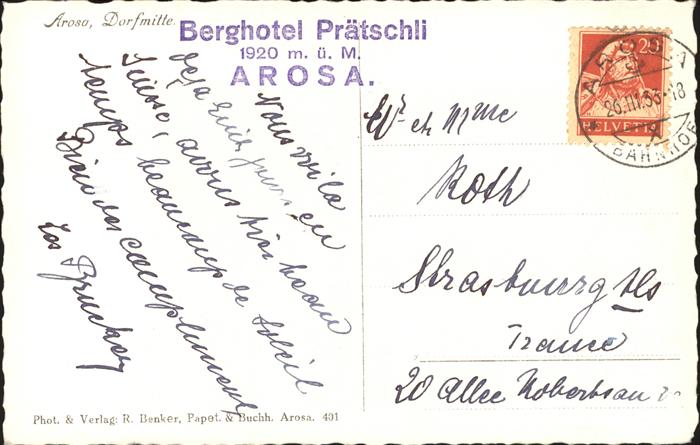 Arosa, Dorfmitte.
Berghotel Prätschli
1920 m. ü. M.
AROSA.
Nous voilà
déjà huit jours en
Suisse, avons très beau
temps beaucoup de soleil
Bien des compliments
Les Brucker
20
HELVETIA
AROSA
26.III.33-18
BAHNHOF
Mr et Mme
Roth
Strasbourg Als
France
20 Allee Robertsau
Phot. & Verlag: R. Benker, Papet. & Buchh. Arosa. 401